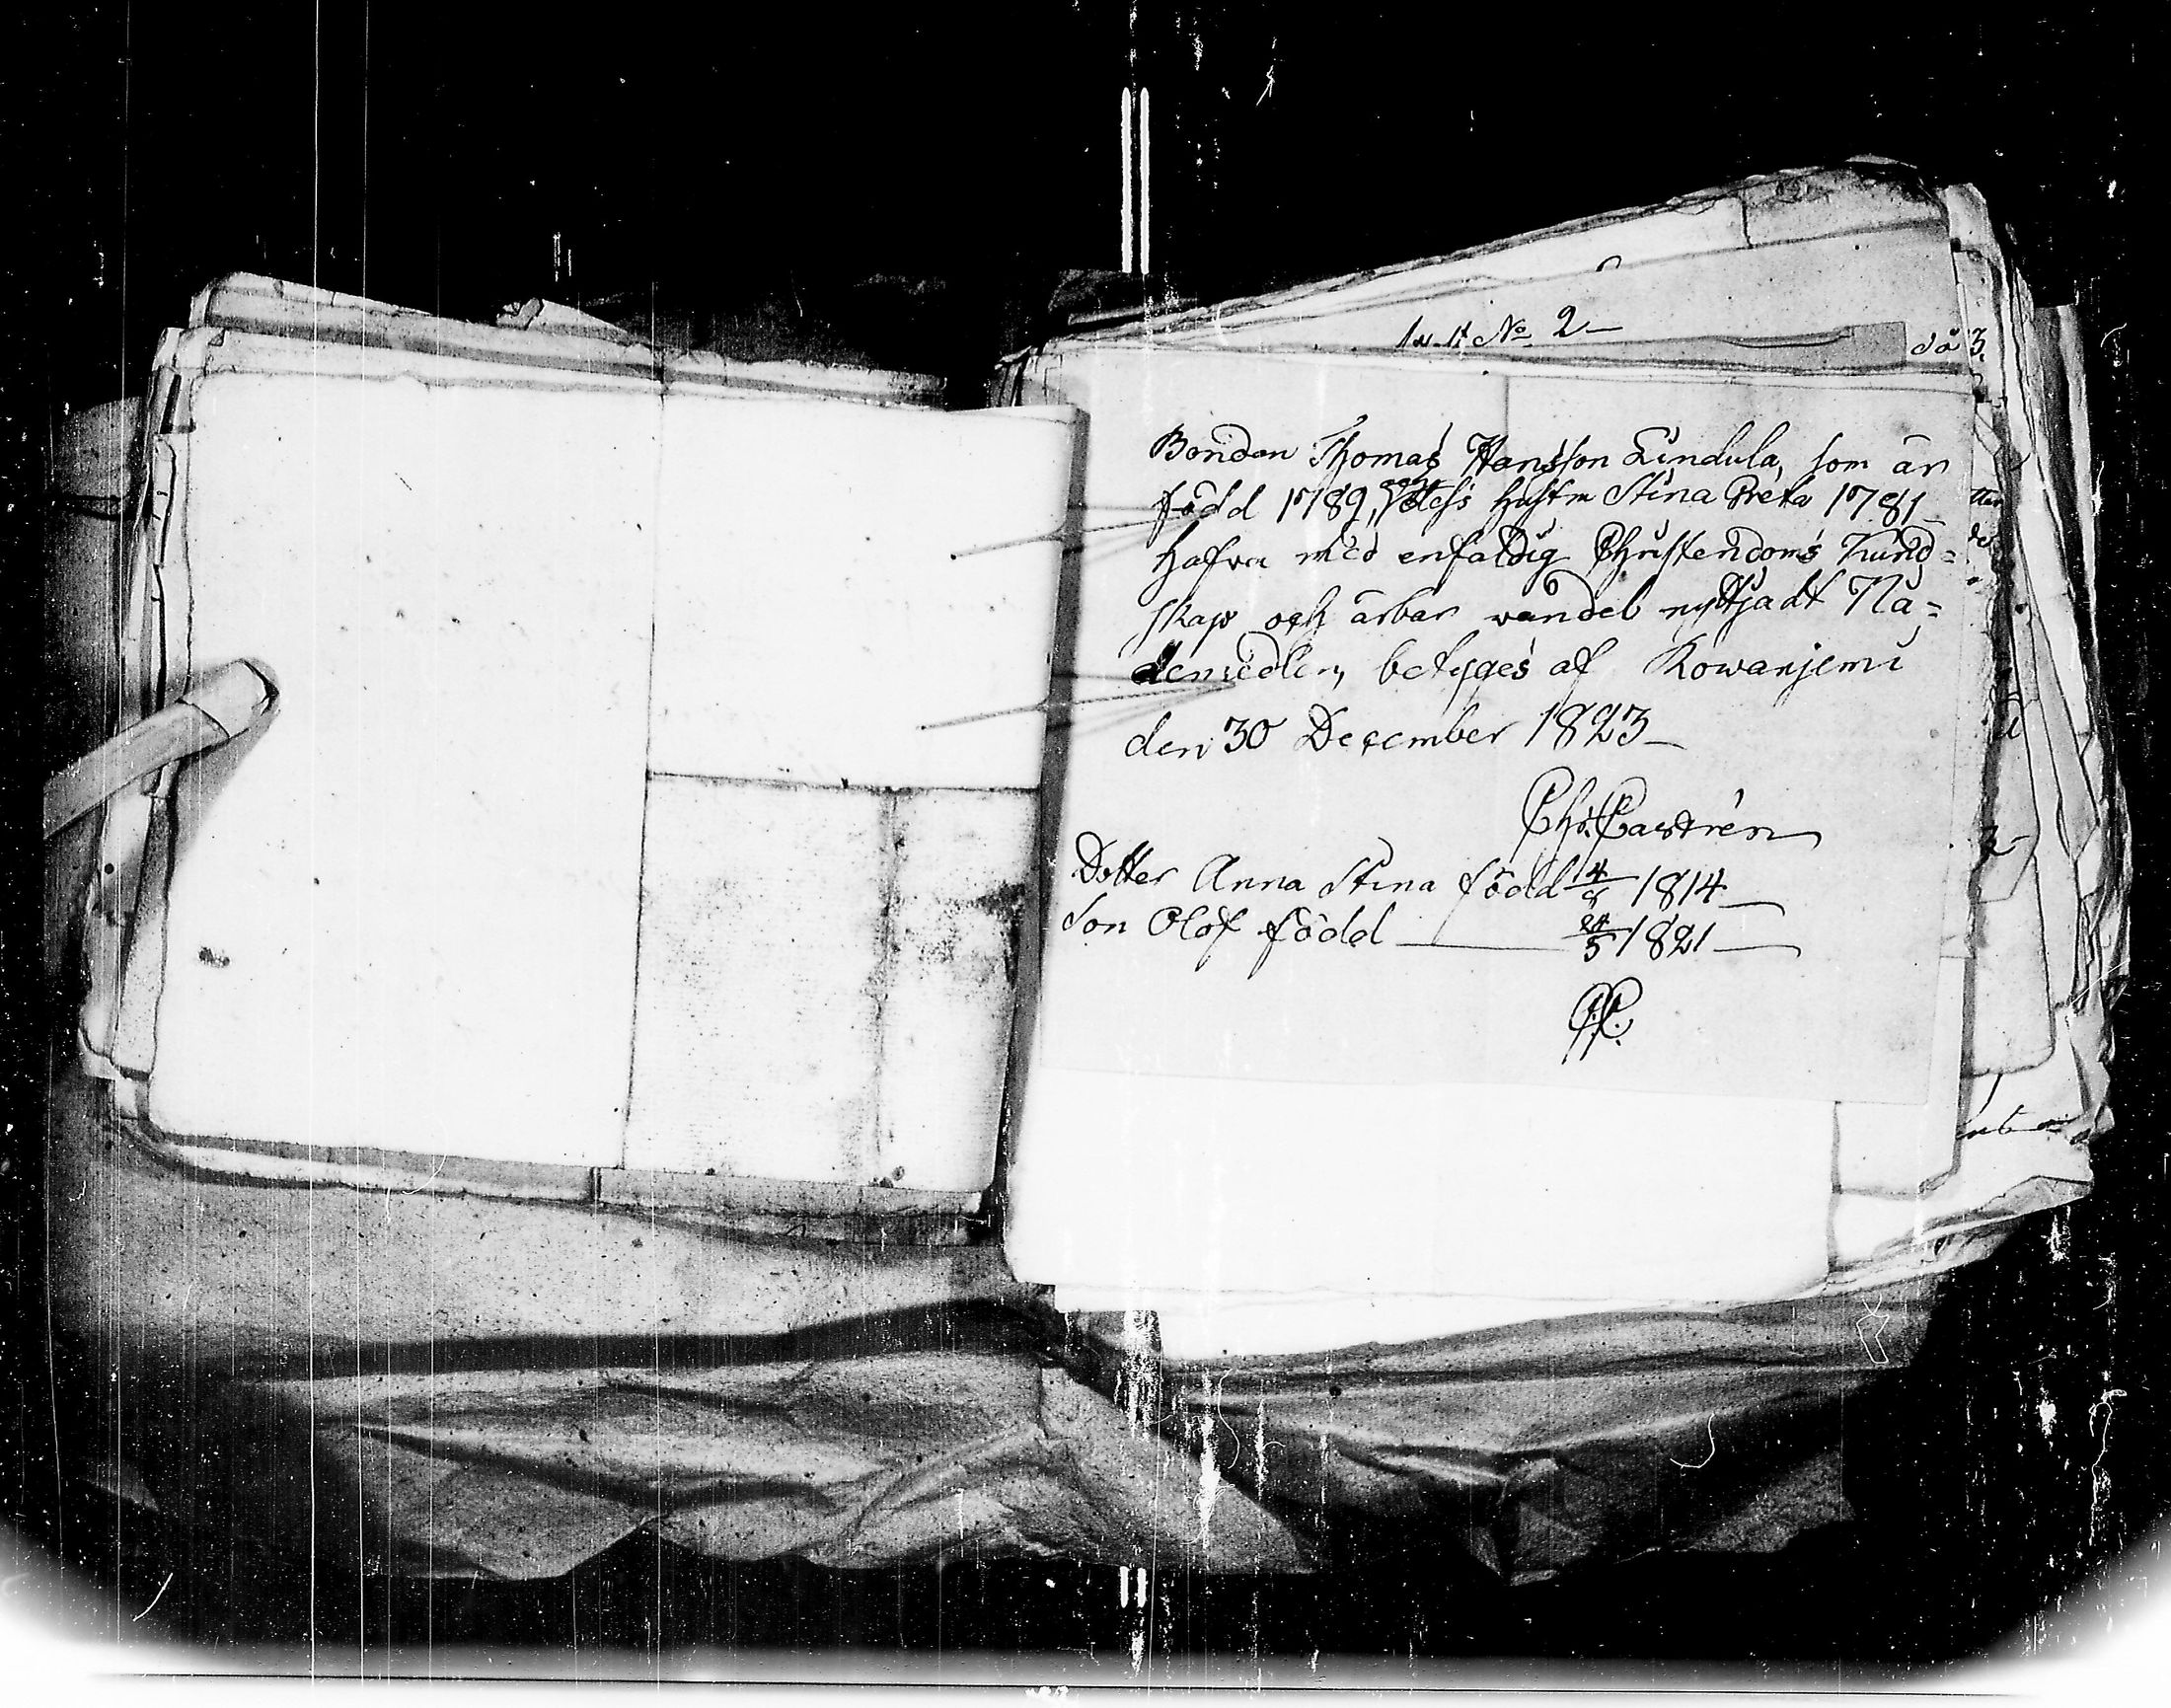 No 2
Bondan Thomas Hansson Lindula, som är
född 1789, och dess hustru Stina Greta 1781
hafva med enfaldig Christendoms kund=
skap och ärbar vandel nyttjadt Nå=
demedlen, betyges af Rowanjemi
den 30 December 1823
Chr. Castrén
Dotter Anna Stina född 14/8 1814
Son Olof född 24/5 1821